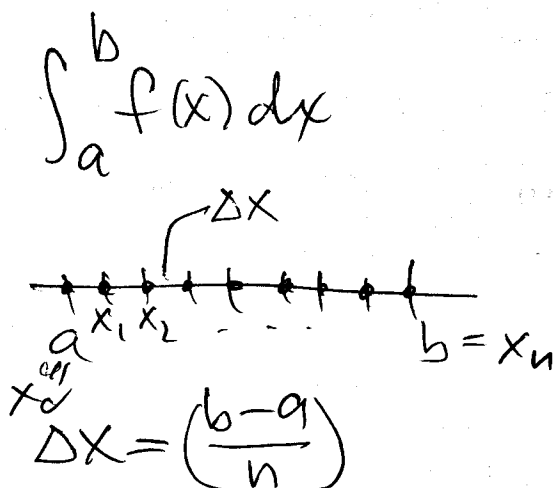 ∫_a^b f(x) dx
Δx
x₁ x₂ . . .
a b = xₙ
x₀
Δx = (b-a / n)